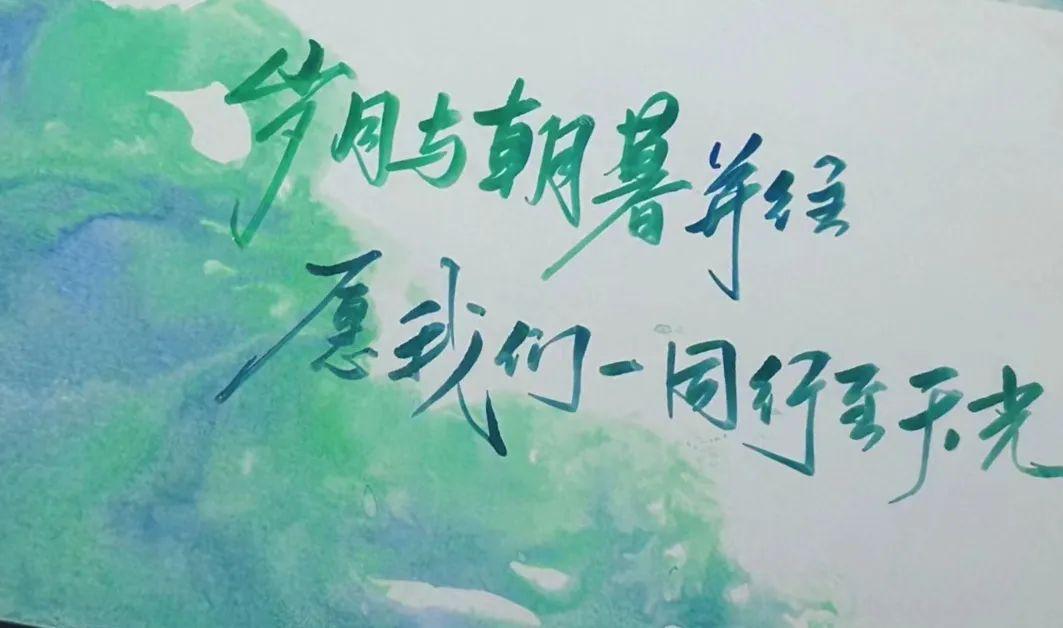 岁月与朝暮并往
愿我们一同行至天光